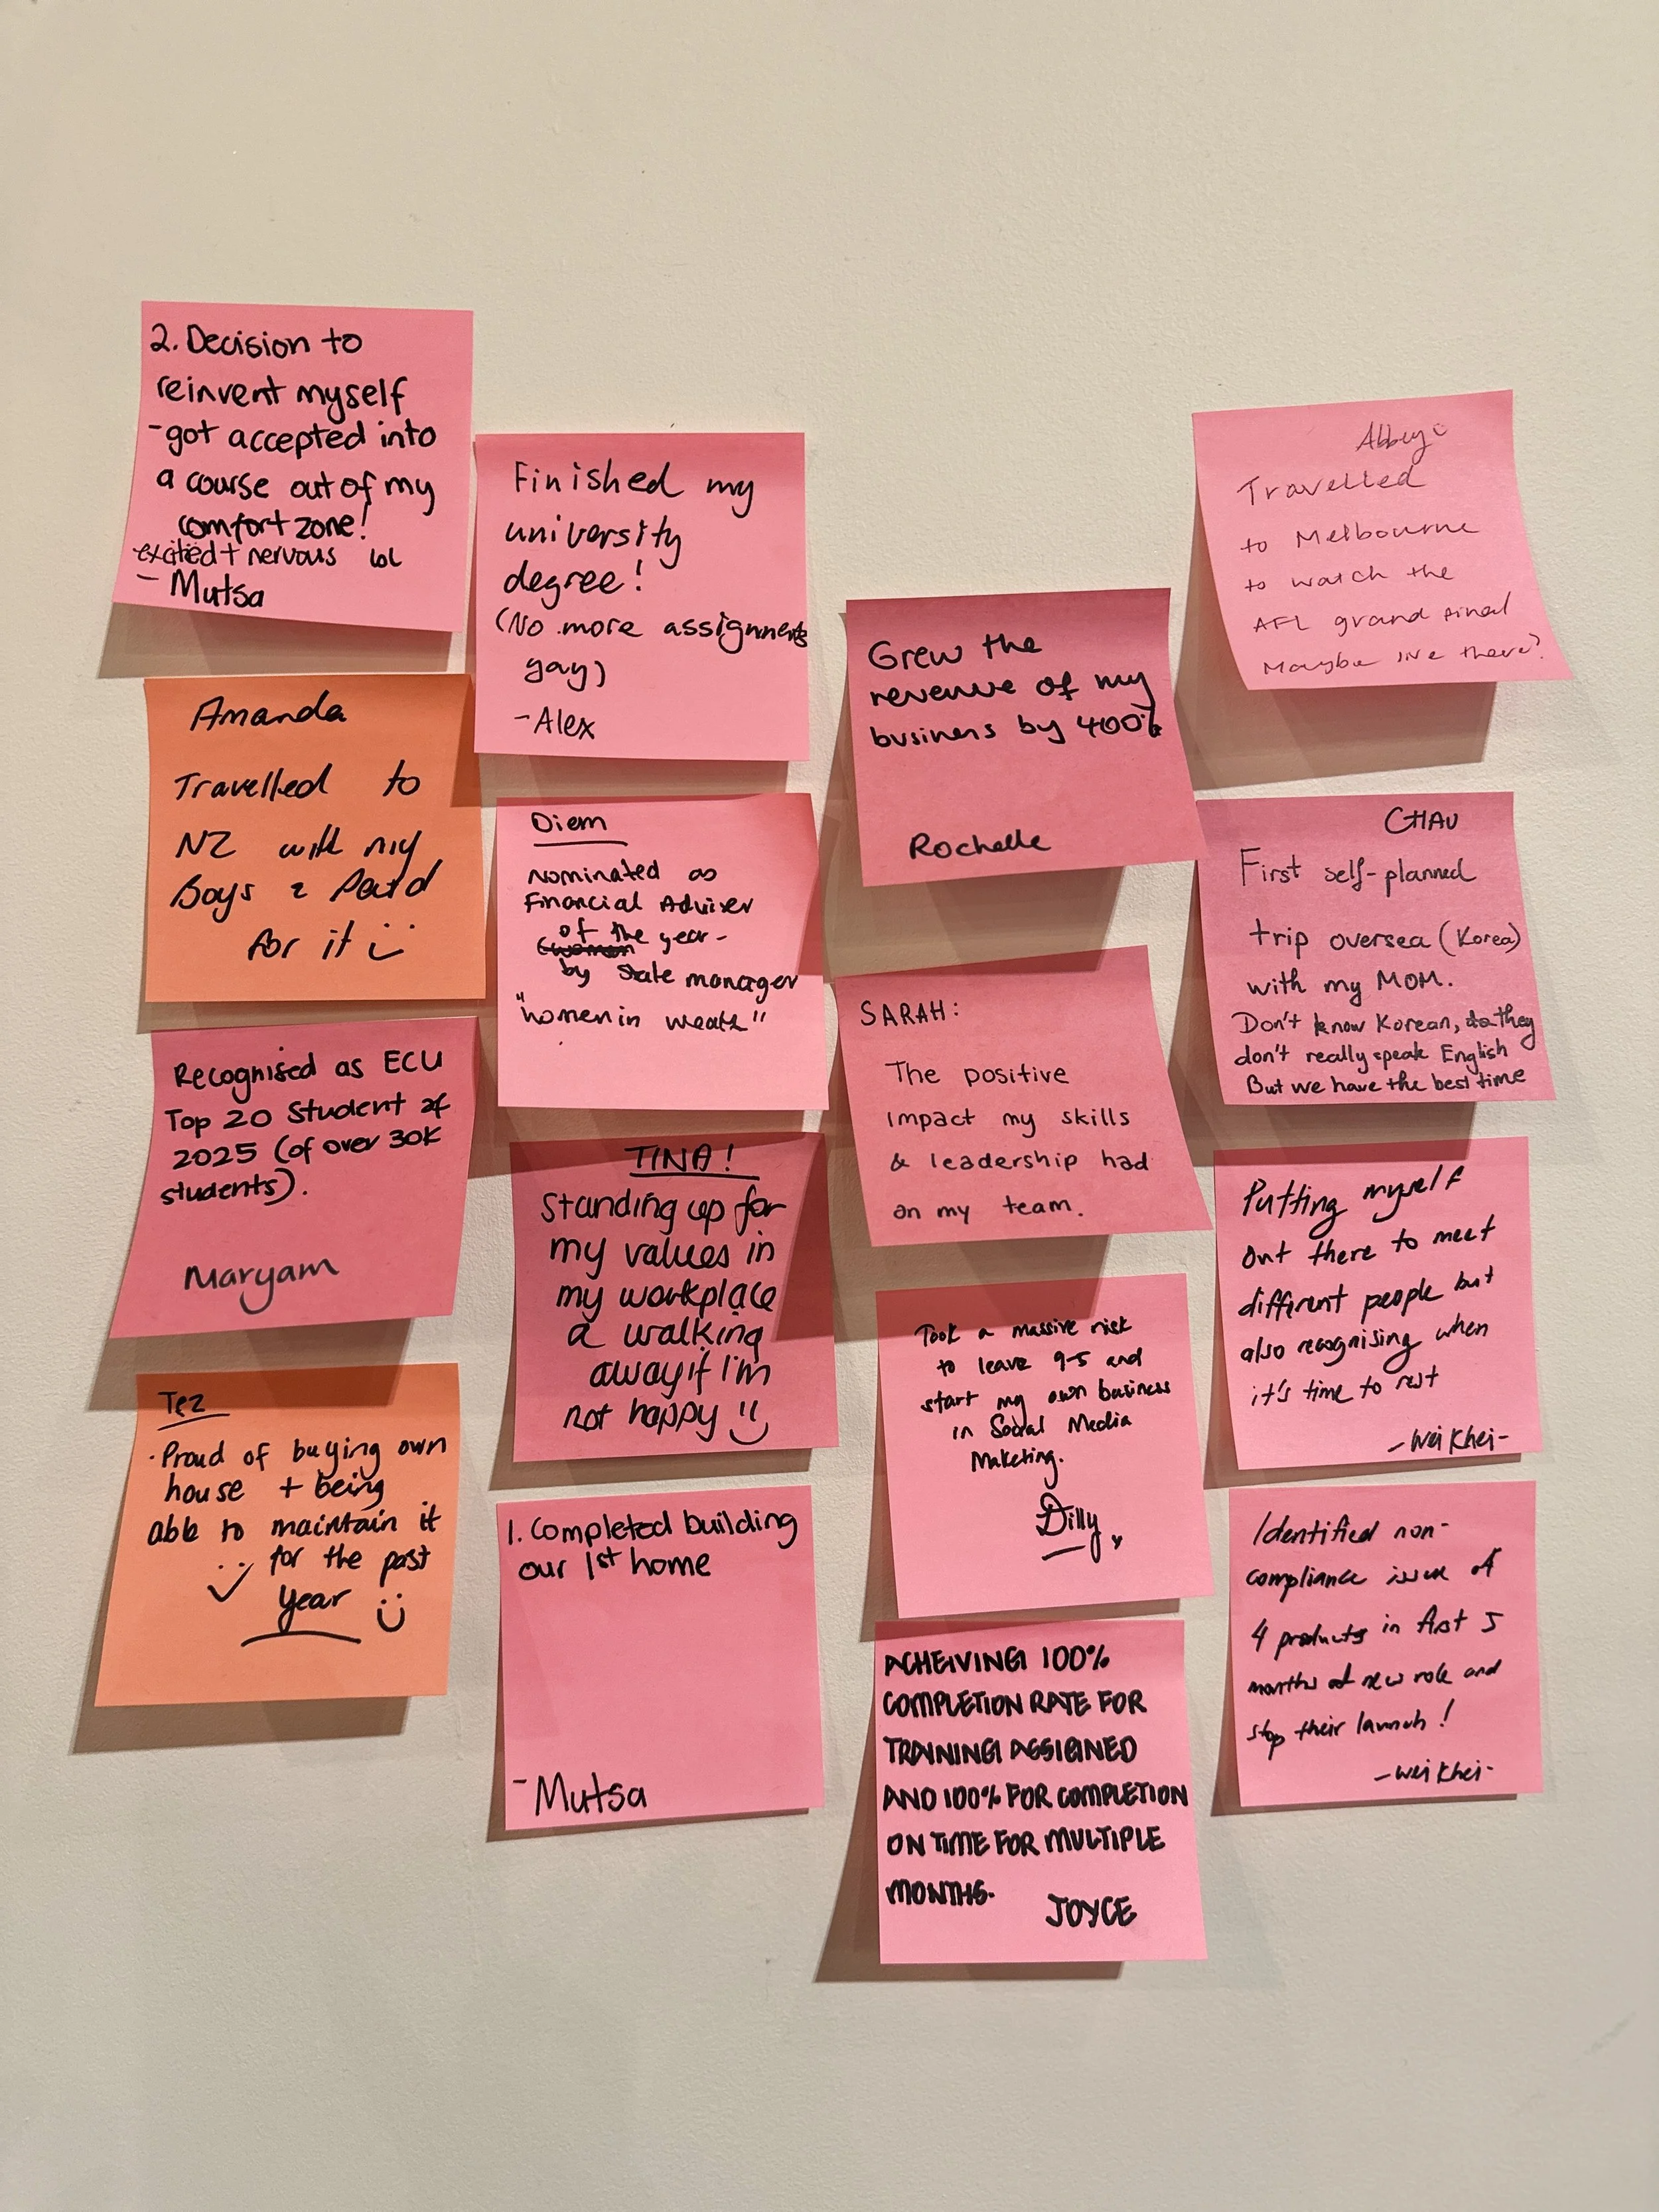 2. Decision to
reinvent myself
- got accepted into
a course out of my
comfort zone!
excitied + nervous lol
- Mutsa
Amanda
Travelled to
NZ with my
Boys & Paid
for it
Recognised as ECU
Top 20 Student of
2025 (of over 30K
students).
Maryam
Tez
· Proud of buying own
house + being
able to maintain it
for the past
year
Finished my
university
degree!
(No more assignments
yay)
- Alex
Diem
nominated as
Financial Adviser
of the year -
(women
by state manager
"women in wealth"
TINA!
Standing up for
my values in
my workplace
& walking
away if I'm
not happy
1. Completed building
our 1st home
- Mutsa
Grew the
revenue of my
business by 400%
Rochelle
SARAH:
The positive
impact my skills
& leadership had
on my team.
Took a massive risk
to leave 9-5 and
start my own business
in Social Media
Maketing.
Dilly
ACHEIVING 100%
COMPLETION RATE FOR
TRAINING ASSIGNED
AND 100% FOR COMPLETION
ON TIME FOR MULTIPLE
MONTHS.
JOYCE
Abbey
Travelled
to Melbourne
to watch the
AFL grand final
Maybe live there?
CHAU
First self-planned
trip oversea (Korea)
with my MOM.
Don't know Korean, they
don't really speak English
But we have the best time
Putting myself
out there to meet
different people but
also recognising when
it's time to rest
- Wei Khei -
Identified non-
compliance issue of
4 products in first 5
months of new role and
stop their launch!
- Wei Khei -